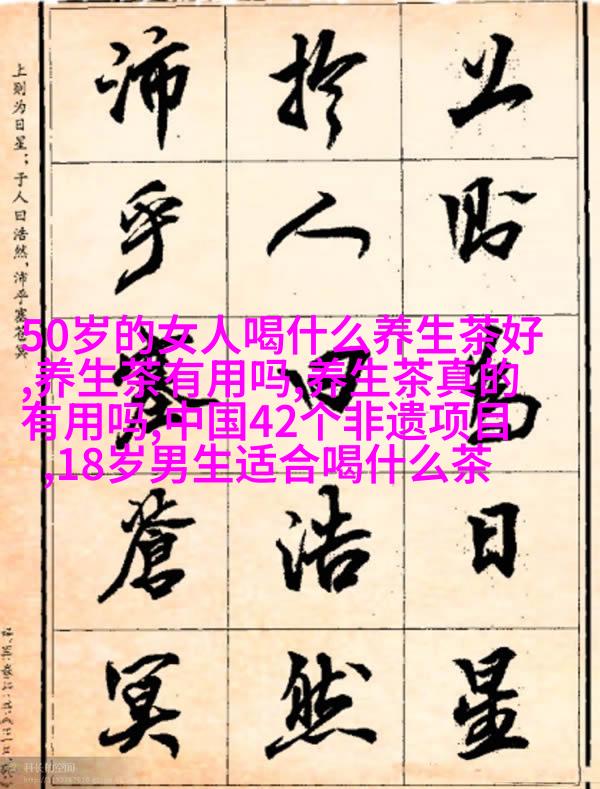 上則為日星
於人曰浩然
沛乎塞蒼冥
上则为日星；于人曰浩然，沛乎塞苍冥
50岁的女人喝什么养生茶好
,养生茶有用吗,养生茶真的
有用吗,中国42个非遗项目
,18岁男生适合喝什么茶
科长的空间